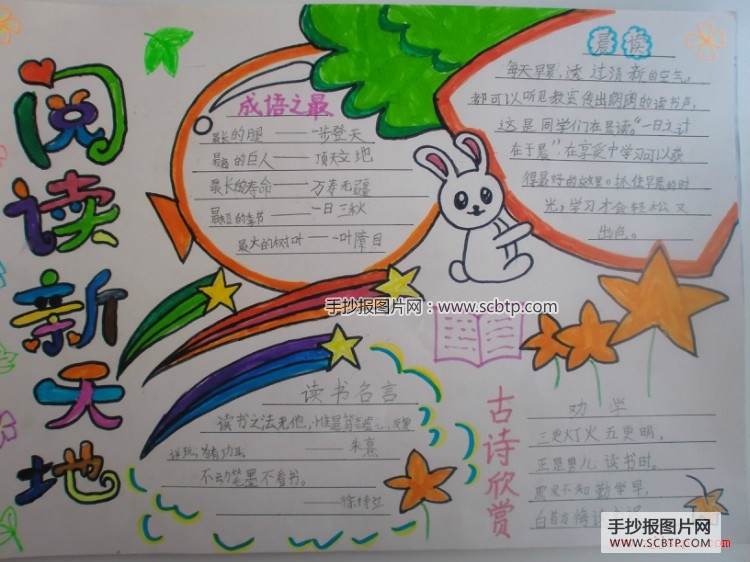 阅读新天地
成语之最
最长的腿——一步登天
最高的巨人——顶天立地
最长的寿命——万寿无疆
最短的季节——一日三秋
最大的树叶——一叶障目
晨读
每天早晨,透过清新的空气,
都可以听见教室传出朗朗的读书声,
这是同学们在晨读。"一日之计
在于晨",在享受中学习可以获
得最好的效果。抓住早晨的时
光,学习才会轻松又
出色。
手抄报图片网:www.scbtp.com
读书名言
读书之法无他,惟是笃志虚心,反复
详玩,为有功
——朱熹
不动笔墨不看书。
——徐特立
古诗欣赏
劝学
三更灯火五更明,
正是男儿读书时。
黑发不知勤学早,
白首方悔读
手抄报图片网
WWW.SCBTP.COM